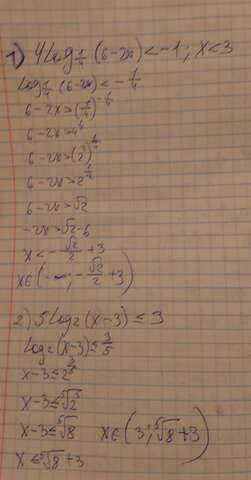 1) 4log_{1/4}(6-2x)<-1; x<3
log_{1/4}(6-2x)<-1/4
6-2x>(1/4)^{-1/4}
6-2x>4^{1/4}
6-2x>(2²)^{1/4}
6-2x>2^{1/2}
6-2x>√2
-2x>√2-6
x<-√2/2+3
x∈(-∞;-√2/2+3)
2) 5log₂(x-3)≤3
log₂(x-3)≤3/5
x-3≤2^{3/5}
x-3≤⁵√2³
x-3≤⁵√8 x∈(3;⁵√8+3)
x≤⁵√8+3